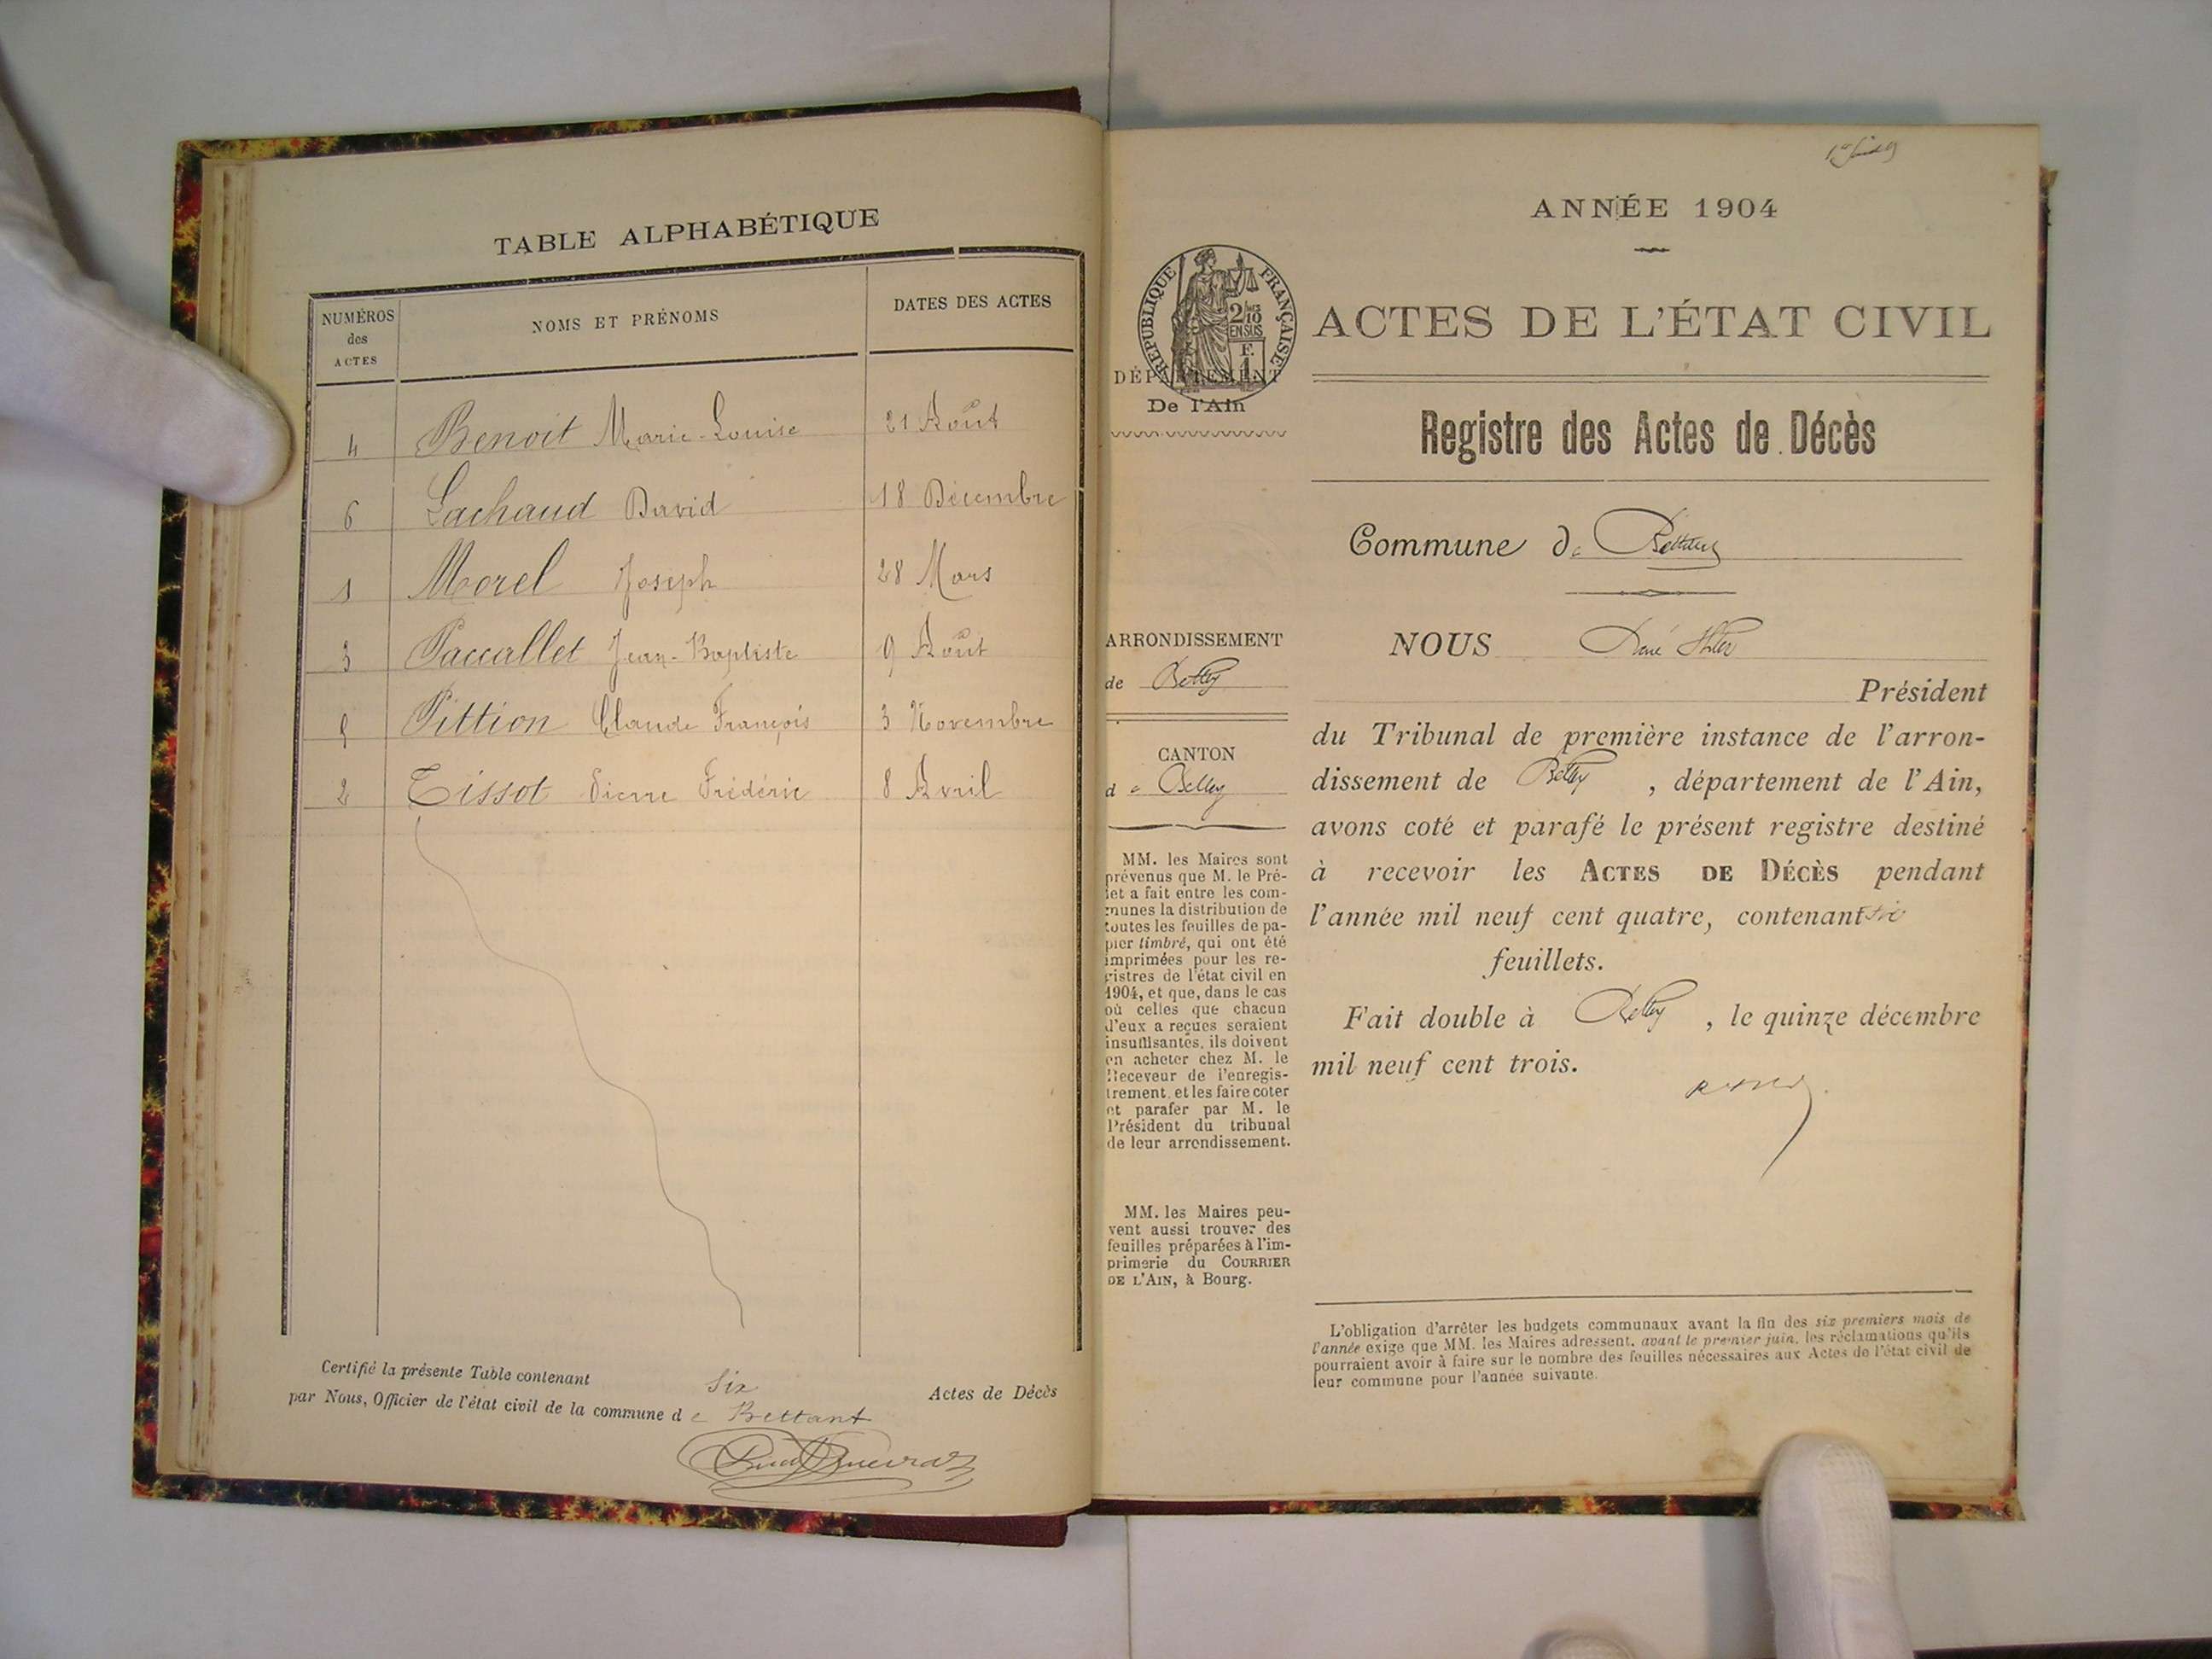 TABLE ALPHABÉTIQUE
NUMÉROS
des
ACTES
NOMS ET PRÉNOMS
DATES DES ACTES
4 Benoit Marie-Louise 21 Août
6 Lachaud David 18 Décembre
1 Morel Joseph 28 Mars
3 Paccallet Jean-Baptiste 9 Août
5 Pittion Claude François 3 Novembre
2 Tissot Pierre Frédéric 8 Avril
Certifié la présente Table contenant six Actes de Décès
par Nous, Officier de l'état civil de la commune de Bettant
ANNÉE 1904
RÉPUBLIQUE FRANÇAISE
2/10
EN SUS
F.
1
ACTES DE L'ÉTAT CIVIL
DÉPARTEMENT
De l'Ain
Registre des Actes de Décès
Commune de Bettant
ARRONDISSEMENT
de Belley
CANTON
de Belley
MM. les Maires sont
prévenus que M. le Pré-
fet a fait entre les com-
munes la distribution de
toutes les feuilles de pa-
pier timbré, qui ont été
imprimées pour les re-
gistres de l'état civil en
1904, et que, dans le cas
où celles que chacun
d'eux a reçues seraient
insuffisantes, ils doivent
en acheter chez M. le
Receveur de l'enregis-
trement, et les faire coter
et parafer par M. le
Président du tribunal
de leur arrondissement.
MM. les Maires peu-
vent aussi trouver des
feuilles préparées à l'im-
primerie du COURRIER
DE L'AIN, à Bourg.
NOUS
Président
du Tribunal de première instance de l'arron-
dissement de Belley, département de l'Ain,
avons coté et parafé le présent registre destiné
à recevoir les ACTES DE DÉCÈS pendant
l'année mil neuf cent quatre, contenant six
feuillets.
Fait double à Belley, le quinze décembre
mil neuf cent trois.
L'obligation d'arrêter les budgets communaux avant la fin des six premiers mois de
l'année exige que MM. les Maires adressent, avant le premier juin, les réclamations qu'ils
pourraient avoir à faire sur le nombre des feuilles nécessaires aux Actes de l'état civil de
leur commune pour l'année suivante.